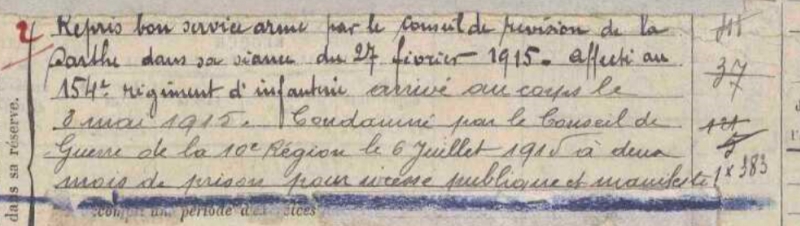 2 Repris bon service armé par le conseil de révision de la
Sarthe dans sa séance du 27 février 1915. Affecté au
154e régiment d'infanterie arrivé au corps le
8 mai 1915. Condamné par le Conseil de
Guerre de la 10e Région le 6 Juillet 1915 à deux
mois de prison pour ivresse publique et manifeste
compli une période d'exercices
dans sa réserve.
37
1 x 383